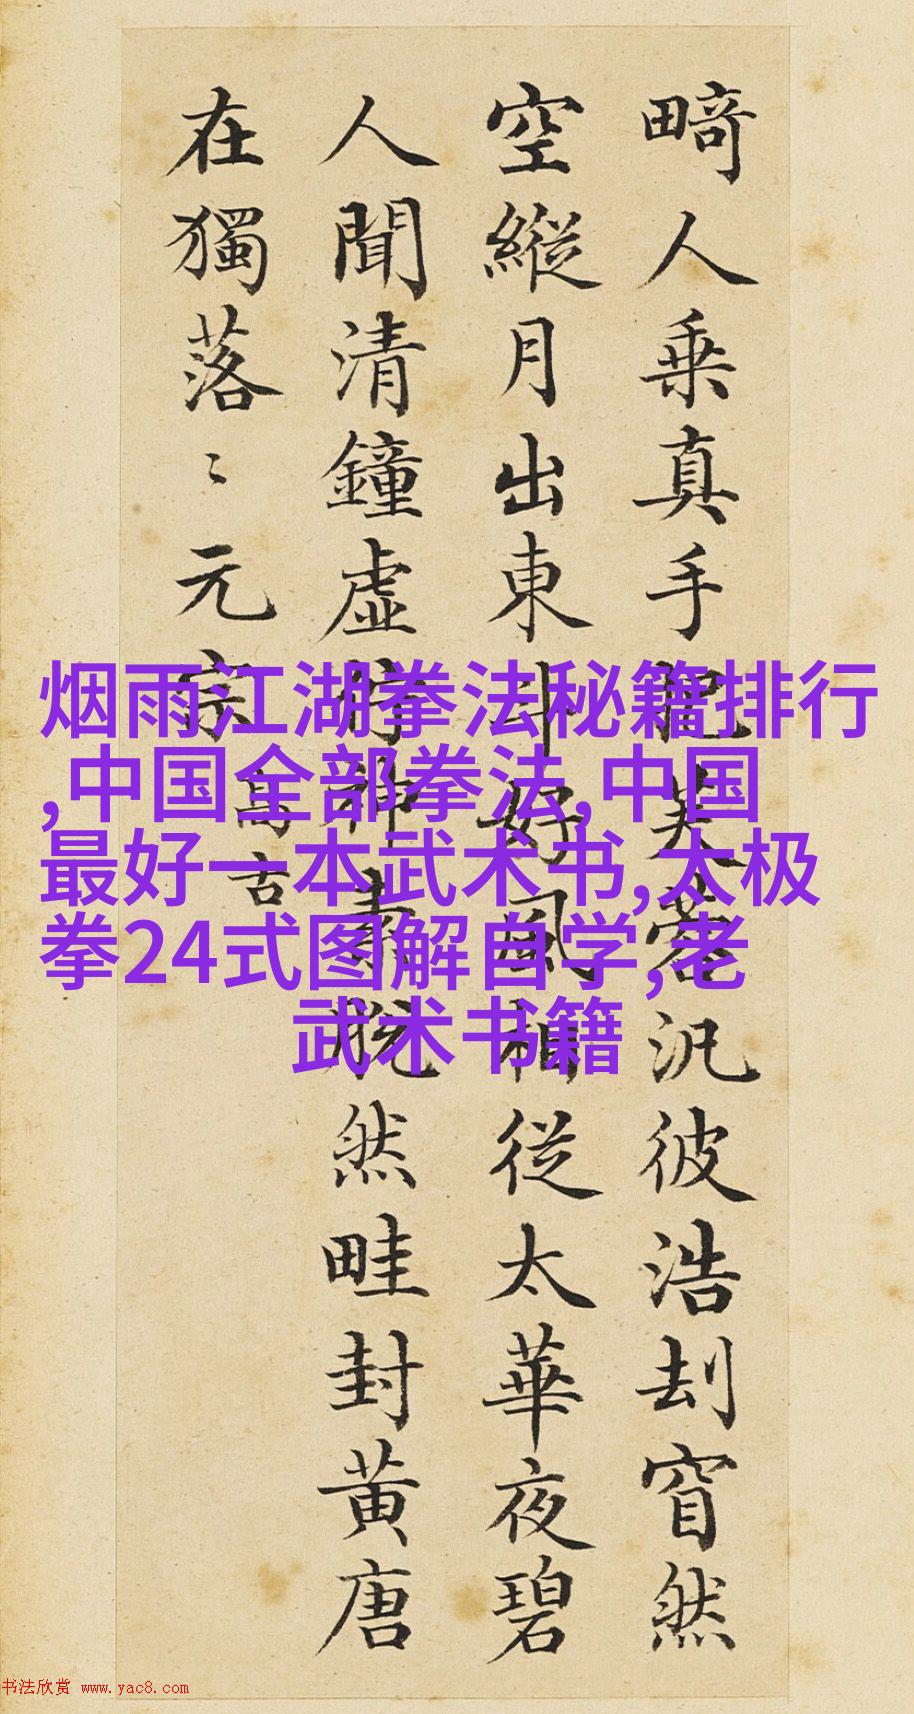 畸人乗真手把芙蓉汎彼浩刦窅然
空縱月出東斗好風相從太華夜碧
人聞清鐘虛佇神素脱然畦封黃唐
在獨落〻元宗
高古
烟雨江湖拳法秘籍排行
,中国全部拳法,中国
最好一本武术书,太极
拳24式图解自学,老
武术书籍
书法欣赏 www.yac8.com